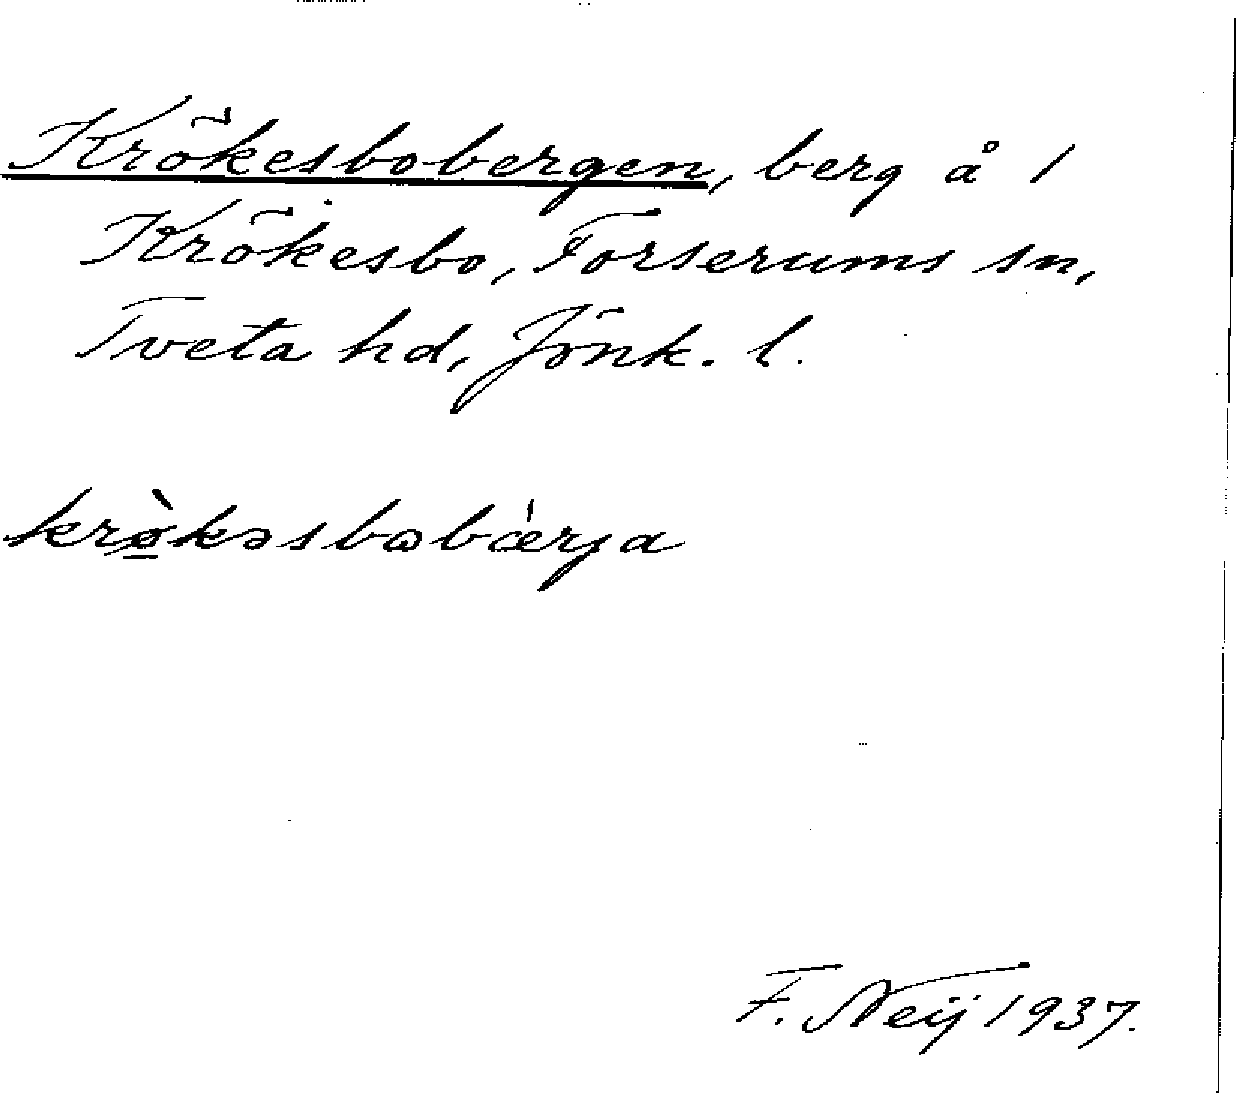 Krökesbobergen, berg å 1
Krökesbo, Forserums sn,
Tveta hd, Jönk. l.
krø̀kəsbωbǽrja
F. Neij 1937.